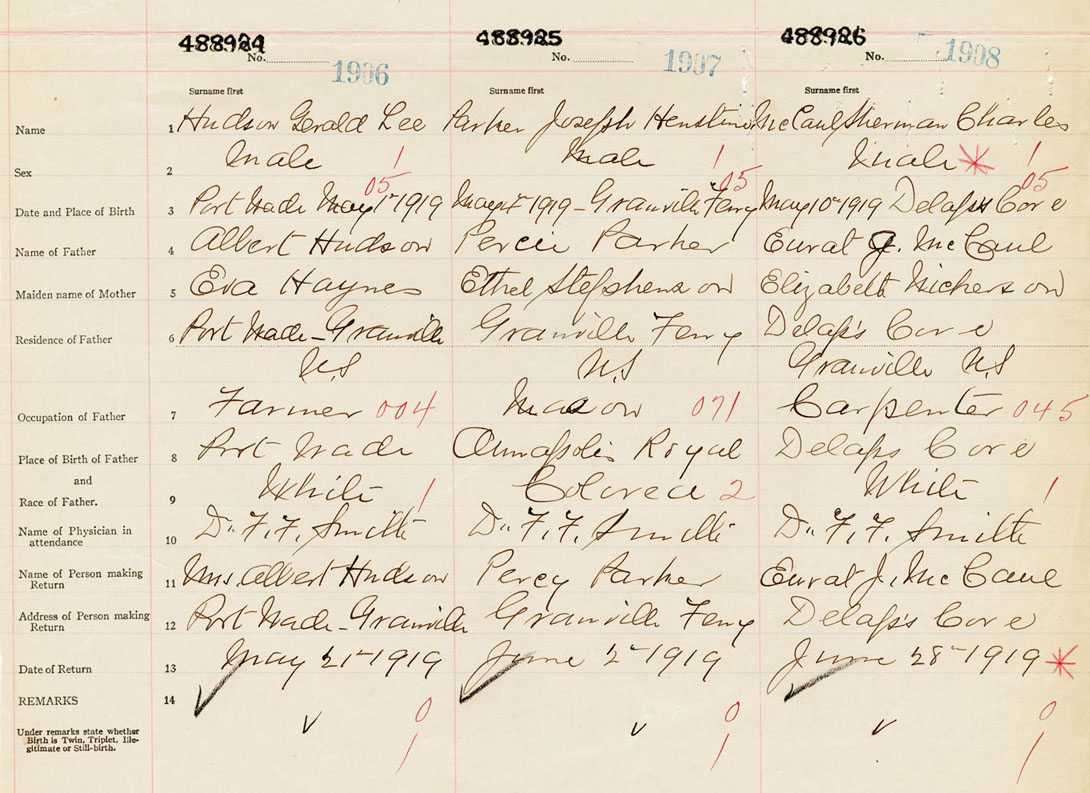 488924 488925 488926
No. 1906 No. 1907 No. 1908
Surname first Surname first Surname first
Name 1 Hudson Gerald Lee Parker Joseph McCaul Sherman Charles
Sex 2 Male 1 Male 1 Male * 1
05 05 05
Date and Place of Birth 3 Port Wade May 1st 1919 May 1919 - Granville Ferry May 10th 1919 Delap's Cove
Name of Father 4 Albert Hudson Percie Parker Eurat J. McCaul
Maiden name of Mother 5 Eva Haynes Ethel Stephenson Elizabeth Nickerson
Residence of Father 6 Port Wade - Granville Granville Ferry Delap's Cove
N.S N.S Granville N.S
Occupation of Father 7 Farmer 004 Mason 071 Carpenter 045
Place of Birth of Father 8 Port Wade Annapolis Royal Delaps Cove
and
Race of Father. 9 White 1 Colored 2 White 1
Name of Physician in
attendance 10 Dr. F. F. Smith Dr. F. F. Smith Dr. F. F. Smith
Name of Person making
Return 11 Mrs Albert Hudson Percy Parker Eurat J. McCaul
Address of Person making
Return 12 Port Wade - Granville Granville Ferry Delap's Cove
Date of Return 13 May 21st 1919 June 2nd 1919 June 28th 1919 *
REMARKS 14
0 0 0
Under remarks state whether
Birth is Twin, Triplet, Ille-
gitimate or Still-birth.
1 1 1